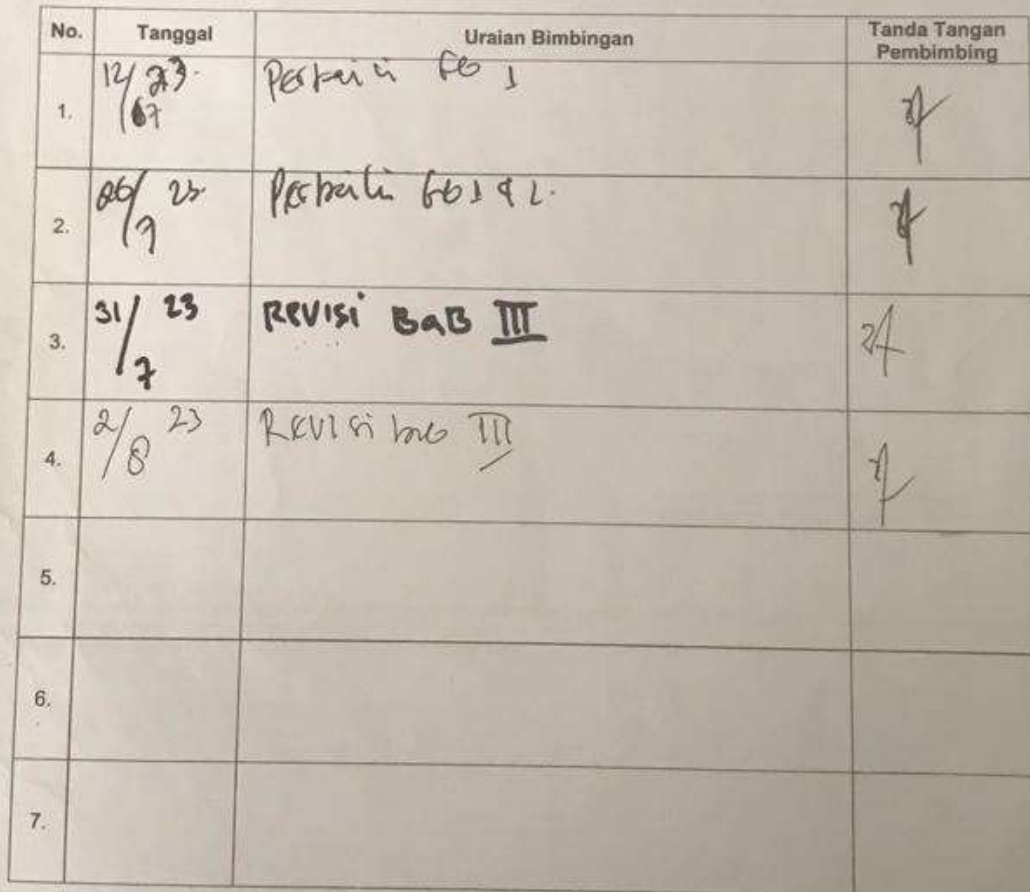 No. Tanggal Uraian Bimbingan Tanda Tangan Pembimbing
1. 12/07 23. Perbaiki bb 1
2. 26/7 23. Perbaiki bb 1 & 2.
3. 31/7 23 REVISI BaB III
4. 2/8 23 Revisi bab III
5.
6.
7.